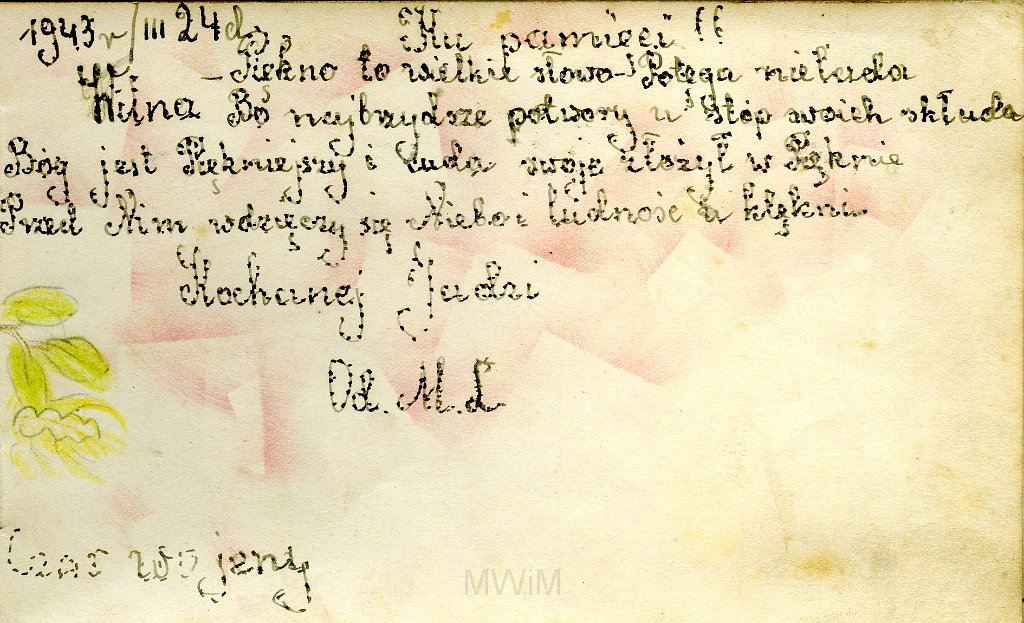 1943 r/III 24d. Ku pamięci !!
Wilna – Piękno to wielkie słowo – Potęga nielada
Bo najbrzydsze potwory u stóp swoich składa
Bóg jest Piękniejszy i cuda swoje złożył w Pięknie
Przed Nim wdzięczy się Niebo i ludność klękni
Kochanej Jadzi
Od. M. L
Czas wojeny
MWiM